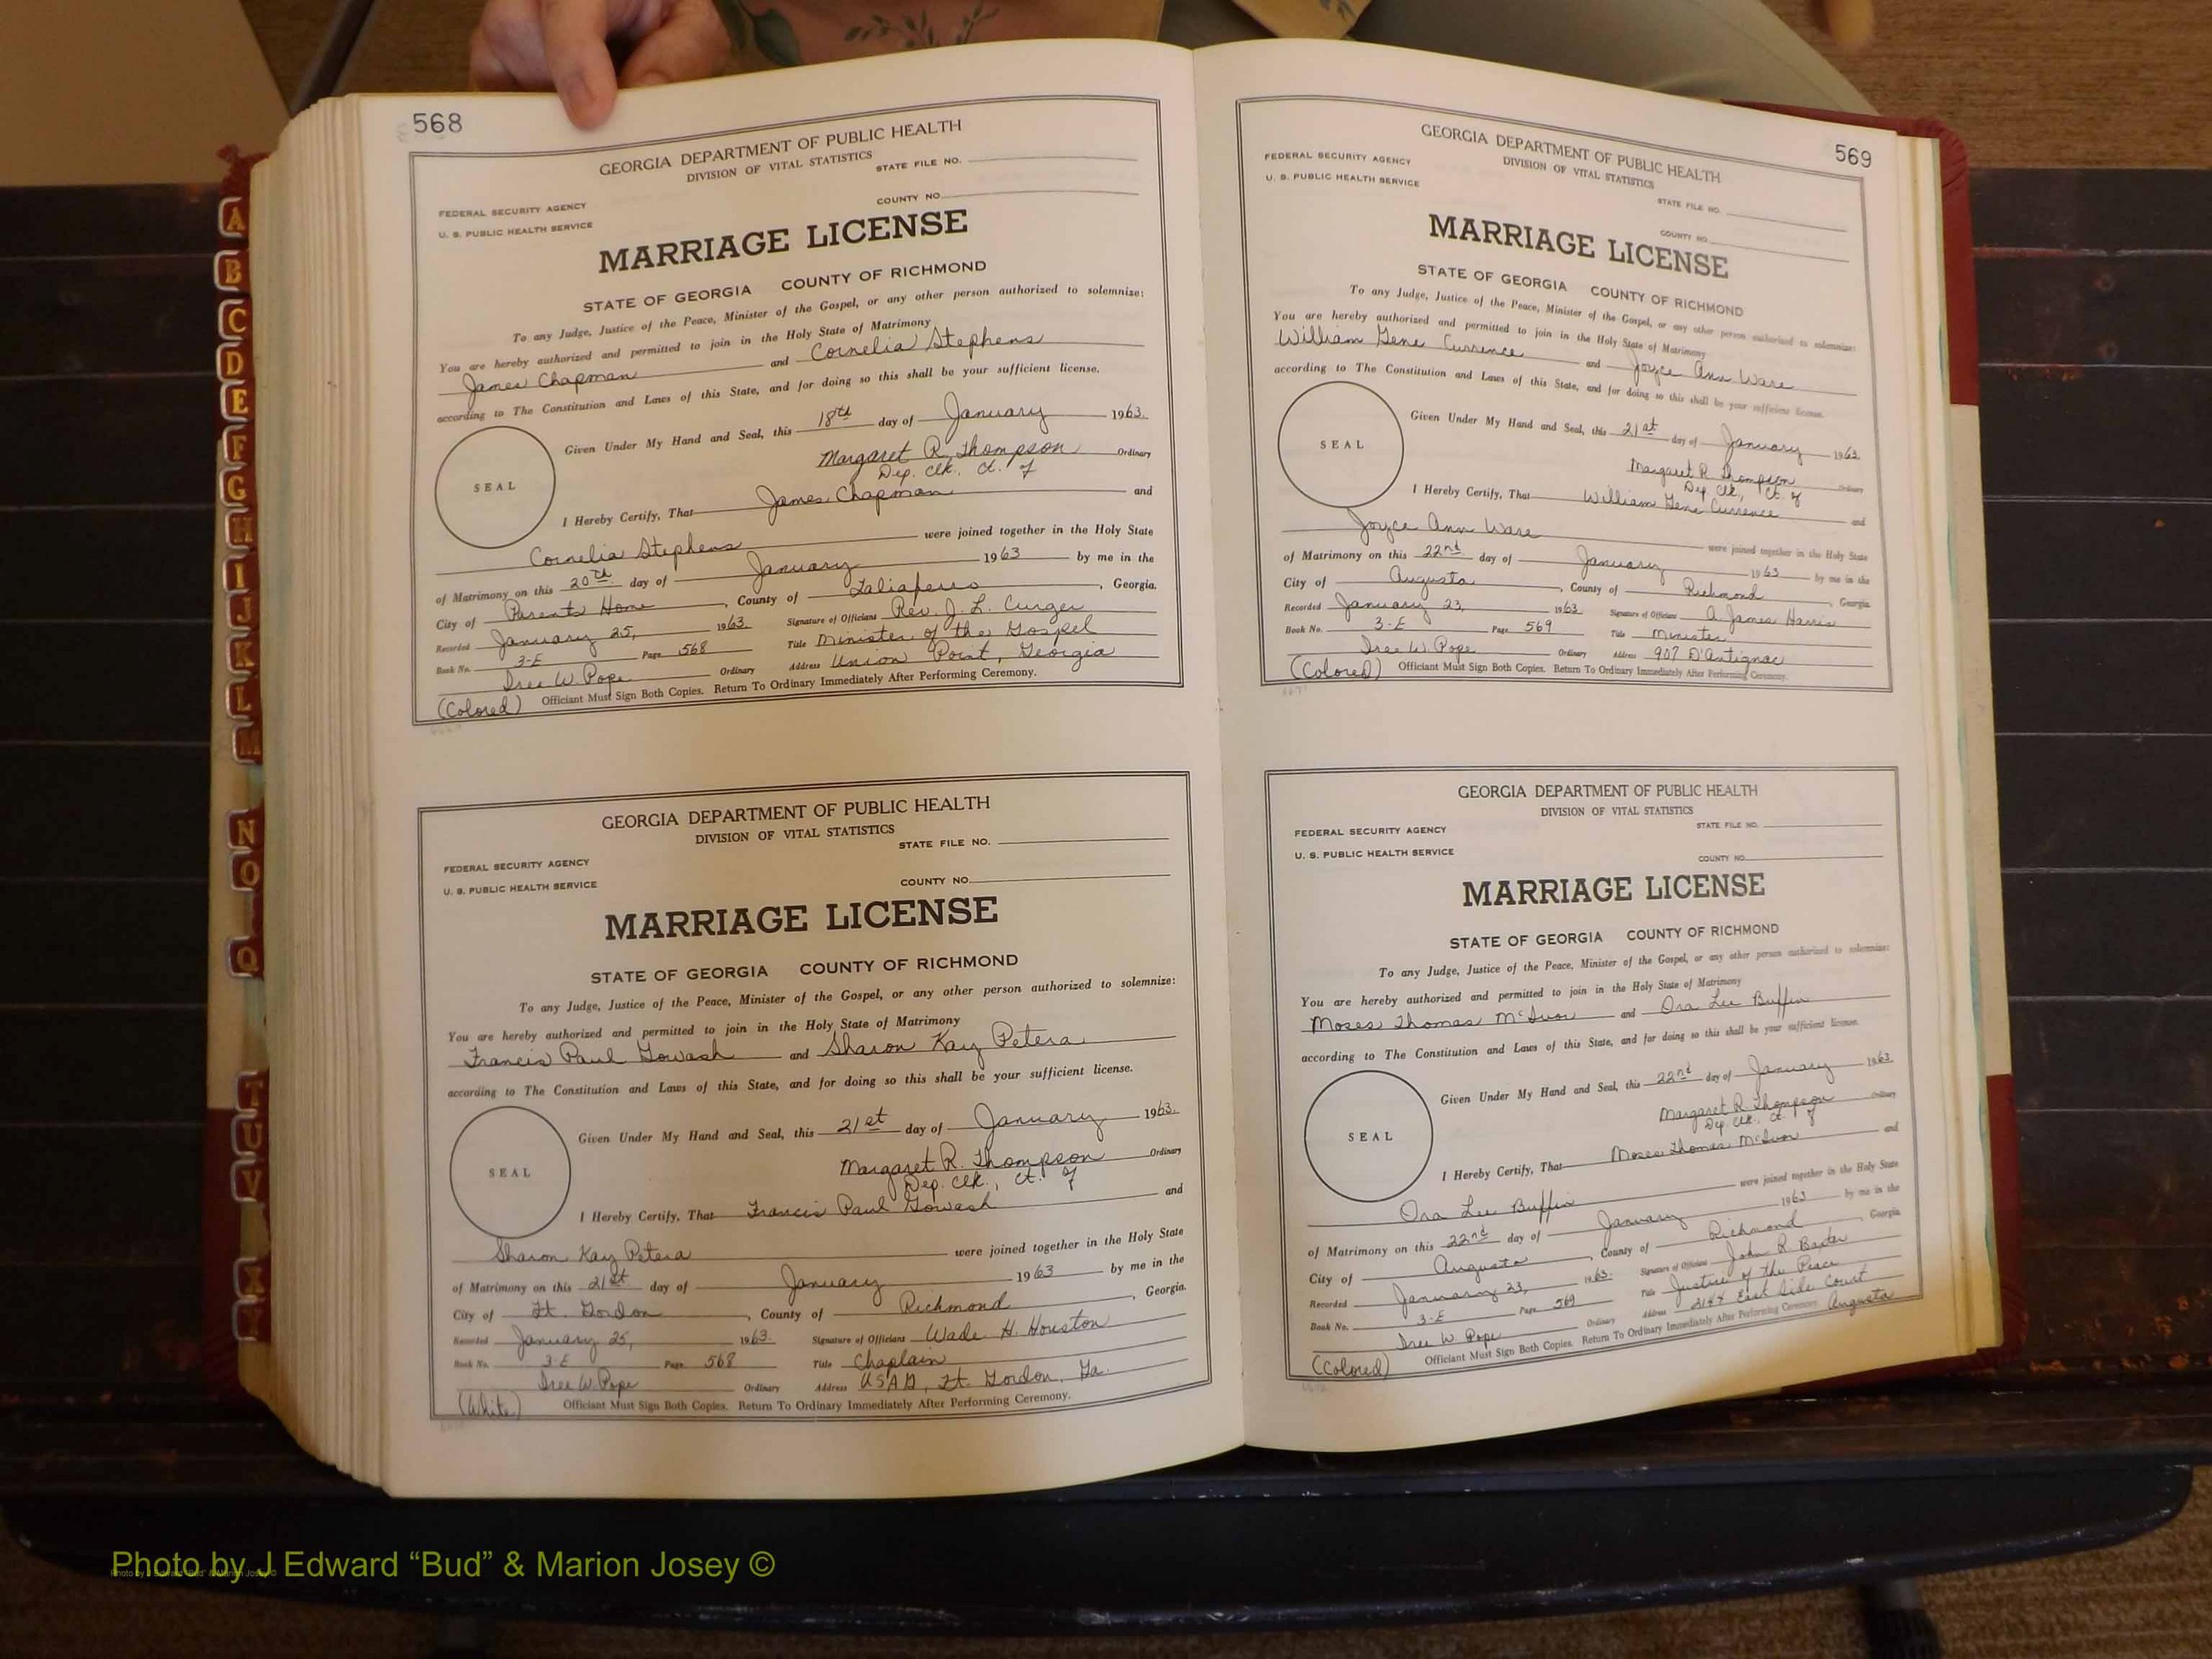 568
GEORGIA DEPARTMENT OF PUBLIC HEALTH
DIVISION OF VITAL STATISTICS
STATE FILE NO.
FEDERAL SECURITY AGENCY
COUNTY NO.
U. S. PUBLIC HEALTH SERVICE
MARRIAGE LICENSE
STATE OF GEORGIA COUNTY OF RICHMOND
To any Judge, Justice of the Peace, Minister of the Gospel, or any other person authorized to solemnize:
You are hereby authorized and permitted to join in the Holy State of Matrimony
James Chapman and Cornelia Stephens
according to The Constitution and Laws of this State, and for doing so this shall be your sufficient license.
Given Under My Hand and Seal, this 18th day of January 1963.
Margaret R. Thompson Ordinary
Dep. Clk., Ct. of
SEAL
I Hereby Certify, That James Chapman and
Cornelia Stephens were joined together in the Holy State
of Matrimony on this 20th day of January 1963 by me in the
City of Parents Home, County of Taliaferro, Georgia.
Recorded January 25, 1963. Signature of Officiant Rev. J. L.
Book No. 3-E Page 568 Title Minister of the Gospel
Iree W. Pope Ordinary Address Union Point, Georgia
(Colored) Officiant Must Sign Both Copies. Return To Ordinary Immediately After Performing Ceremony.
GEORGIA DEPARTMENT OF PUBLIC HEALTH
DIVISION OF VITAL STATISTICS
STATE FILE NO.
FEDERAL SECURITY AGENCY
COUNTY NO.
U. S. PUBLIC HEALTH SERVICE
MARRIAGE LICENSE
STATE OF GEORGIA COUNTY OF RICHMOND
To any Judge, Justice of the Peace, Minister of the Gospel, or any other person authorized to solemnize:
You are hereby authorized and permitted to join in the Holy State of Matrimony
Francis Paul Gowash and Sharon Kay Petera
according to The Constitution and Laws of this State, and for doing so this shall be your sufficient license.
Given Under My Hand and Seal, this 21st day of January 1963.
Margaret R. Thompson Ordinary
Dep. Clk., Ct. of
SEAL
I Hereby Certify, That Francis Paul Gowash and
Sharon Kay Petera were joined together in the Holy State
of Matrimony on this 21st day of January 1963 by me in the
City of Ft. Gordon, County of Richmond, Georgia.
Recorded January 25, 1963. Signature of Officiant Wade H. Houston
Book No. 3-E Page 568 Title Chaplain
Iree W. Pope Ordinary Address USAG, Ft. Gordon, Ga.
(White) Officiant Must Sign Both Copies. Return To Ordinary Immediately After Performing Ceremony.
569
GEORGIA DEPARTMENT OF PUBLIC HEALTH
DIVISION OF VITAL STATISTICS
FEDERAL SECURITY AGENCY
STATE FILE NO.
U. S. PUBLIC HEALTH SERVICE
COUNTY NO.
MARRIAGE LICENSE
STATE OF GEORGIA COUNTY OF RICHMOND
To any Judge, Justice of the Peace, Minister of the Gospel, or any other person authorized to solemnize:
You are hereby authorized and permitted to join in the Holy State of Matrimony
William Gene Currence and Joyce Ann Ware
according to The Constitution and Laws of this State, and for doing so this shall be your sufficient license.
Given Under My Hand and Seal, this 21st day of January 1963.
Margaret R. Thompson Ordinary
Dep. Clk., Ct. of
SEAL
I Hereby Certify, That William Gene Currence and
Joyce Ann Ware were joined together in the Holy State
of Matrimony on this 22nd day of January 1963 by me in the
City of Augusta, County of Richmond, Georgia
Recorded January 23, 1963. Signature of Officiant A. James Harris
Book No. 3-E Page 569 Title Minister
Iree W. Pope Ordinary Address 907 D'Antignac
(Colored) Officiant Must Sign Both Copies. Return To Ordinary Immediately After Performing Ceremony.
GEORGIA DEPARTMENT OF PUBLIC HEALTH
DIVISION OF VITAL STATISTICS
STATE FILE NO.
FEDERAL SECURITY AGENCY
COUNTY NO.
U. S. PUBLIC HEALTH SERVICE
MARRIAGE LICENSE
STATE OF GEORGIA COUNTY OF RICHMOND
To any Judge, Justice of the Peace, Minister of the Gospel, or any other person authorized to solemnize:
You are hereby authorized and permitted to join in the Holy State of Matrimony
Moses Thomas and Ora Lee Buffin
according to The Constitution and Laws of this State, and for doing so this shall be your sufficient license.
Given Under My Hand and Seal, this 22nd day of January 1963
Margaret R. Thompson Ordinary
Dep. Clk., Ct. of
SEAL
I Hereby Certify, That Moses Thomas and
Ora Lee Buffin were joined together in the Holy State
of Matrimony on this 22nd day of January 1963 by me in the
City of Augusta, County of Richmond, Georgia
Recorded January 23, 1963. Signature of Officiant John R. Baxter
Book No. 3-E Page 569 Title Justice of the Peace
Iree W. Pope Ordinary Address 2144 East Side Court
Augusta
(Colored) Officiant Must Sign Both Copies. Return To Ordinary Immediately After Performing Ceremony.
A
B
C
D
E
F
G
H
I
J
K
L
M
N
O
Q
T
U
V
X
Y
Photo by J Edward “Bud” & Marion Josey ©
Photo by J Edward “Bud” & Marion Josey ©